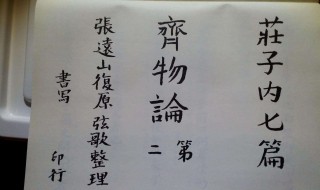 莊子内七篇
齊物論 第二
張遠山復原 弦歌整理
書写 印行